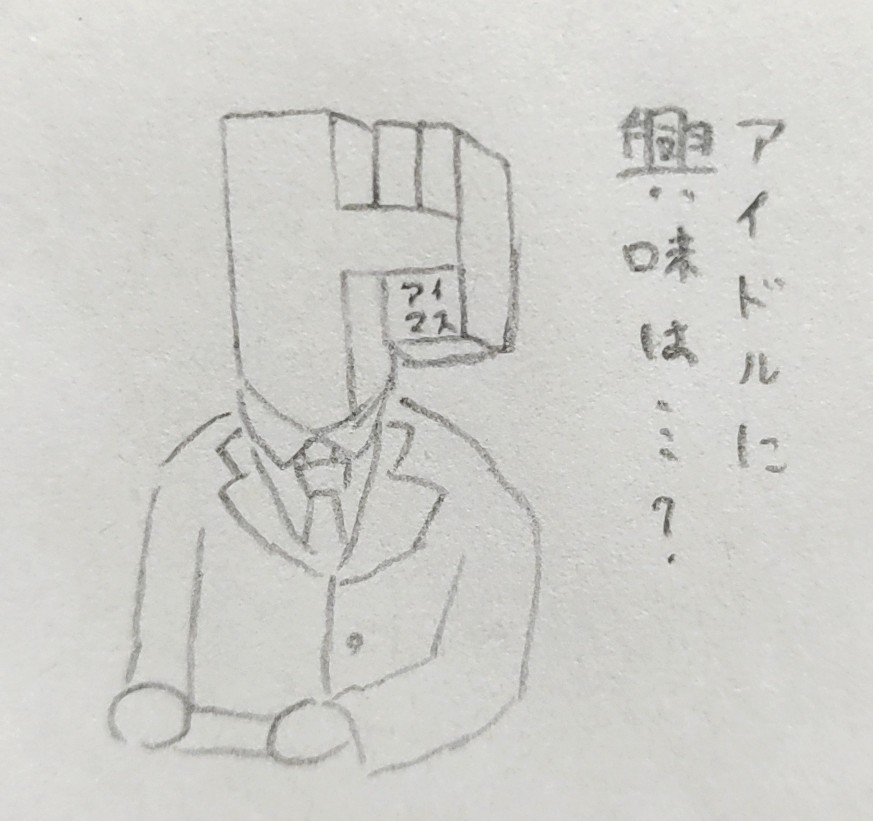 アイドルに
興味は…?
アイ
マス